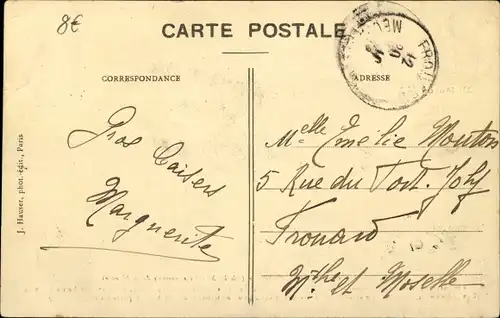 8€
CARTE POSTALE
CORRESPONDANCE
ADRESSE
Gros Baisers
Marguerite
Melle Emelie Mouton
5 Rue du Fort. Joly
Frouard
Mthe et Moselle
J. Hauser, phot.-édit., Paris